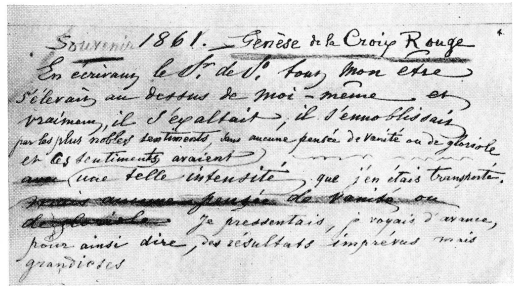 Souvenir 1861. — Genèse de la Croix Rouge
En écrivant le Sr. de S. tout mon être
s'élevait au dessus de moi-même et
vraiment, il s'exaltait, il s'ennoblissait
par les plus nobles sentiments, sans aucune pensée de vanité ou de gloriole
et les sentiments avaient
une telle intensité, que j'en étais transporté.
mais aucune pensée de vanité ou
de gloriole Je pressentais, je voyais d'avance,
pour ainsi dire, des résultats imprévus mais
grandioses